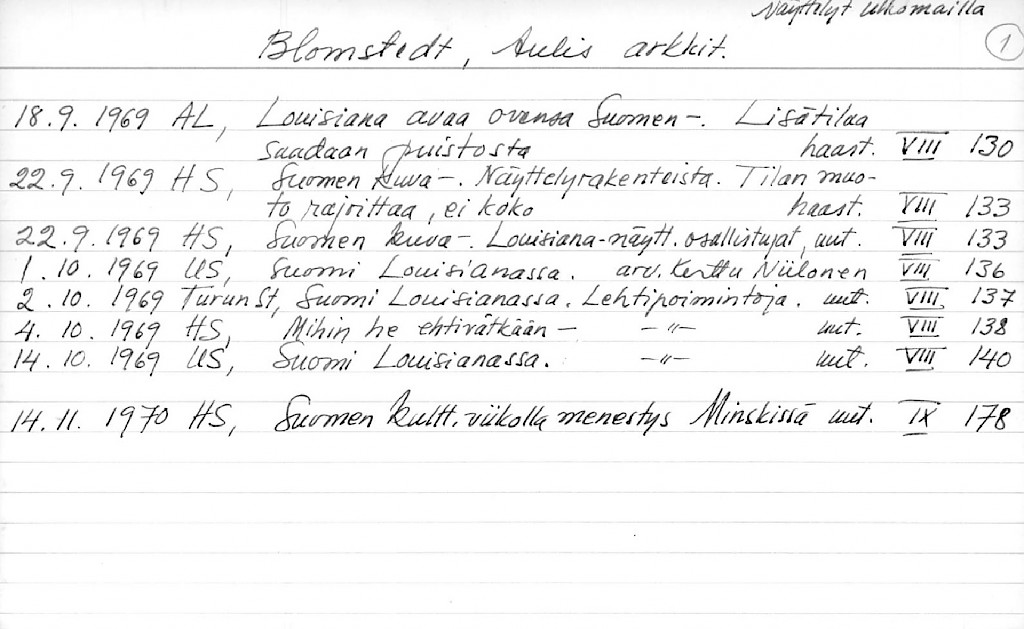 Näyttelyt ulkomailla
1
Blomstedt, Aulis arkkit.
18.9. 1969 AL, Louisiana avaa ovensa Suomen-. Lisätilaa
saadaan puistosta haast. VIII 130
22.9. 1969 HS, Suomen kuva-. Näyttelyrakenteista. Tilan muo-
to rajoittaa, ei koko haast. VIII 133
22.9.1969 HS, Suomen kuva-. Louisiana-näytt. osallistujat, uut. VIII 133
1.10.1969 US, Suomi Louisianassa. arv. Kerttu Niilonen VIII 136
2.10.1969 Turun St, Suomi Louisianassa. Lehtipoimintoja. uut. VIII 137
4.10.1969 HS, Mihin he ehtivätkään - -"- uut. VIII 138
14.10.1969 US, Suomi Louisianassa. -"- uut. VIII 140
14.11.1970 HS, Suomen kultt.viikolla menestys Minskissä uut. IX 178